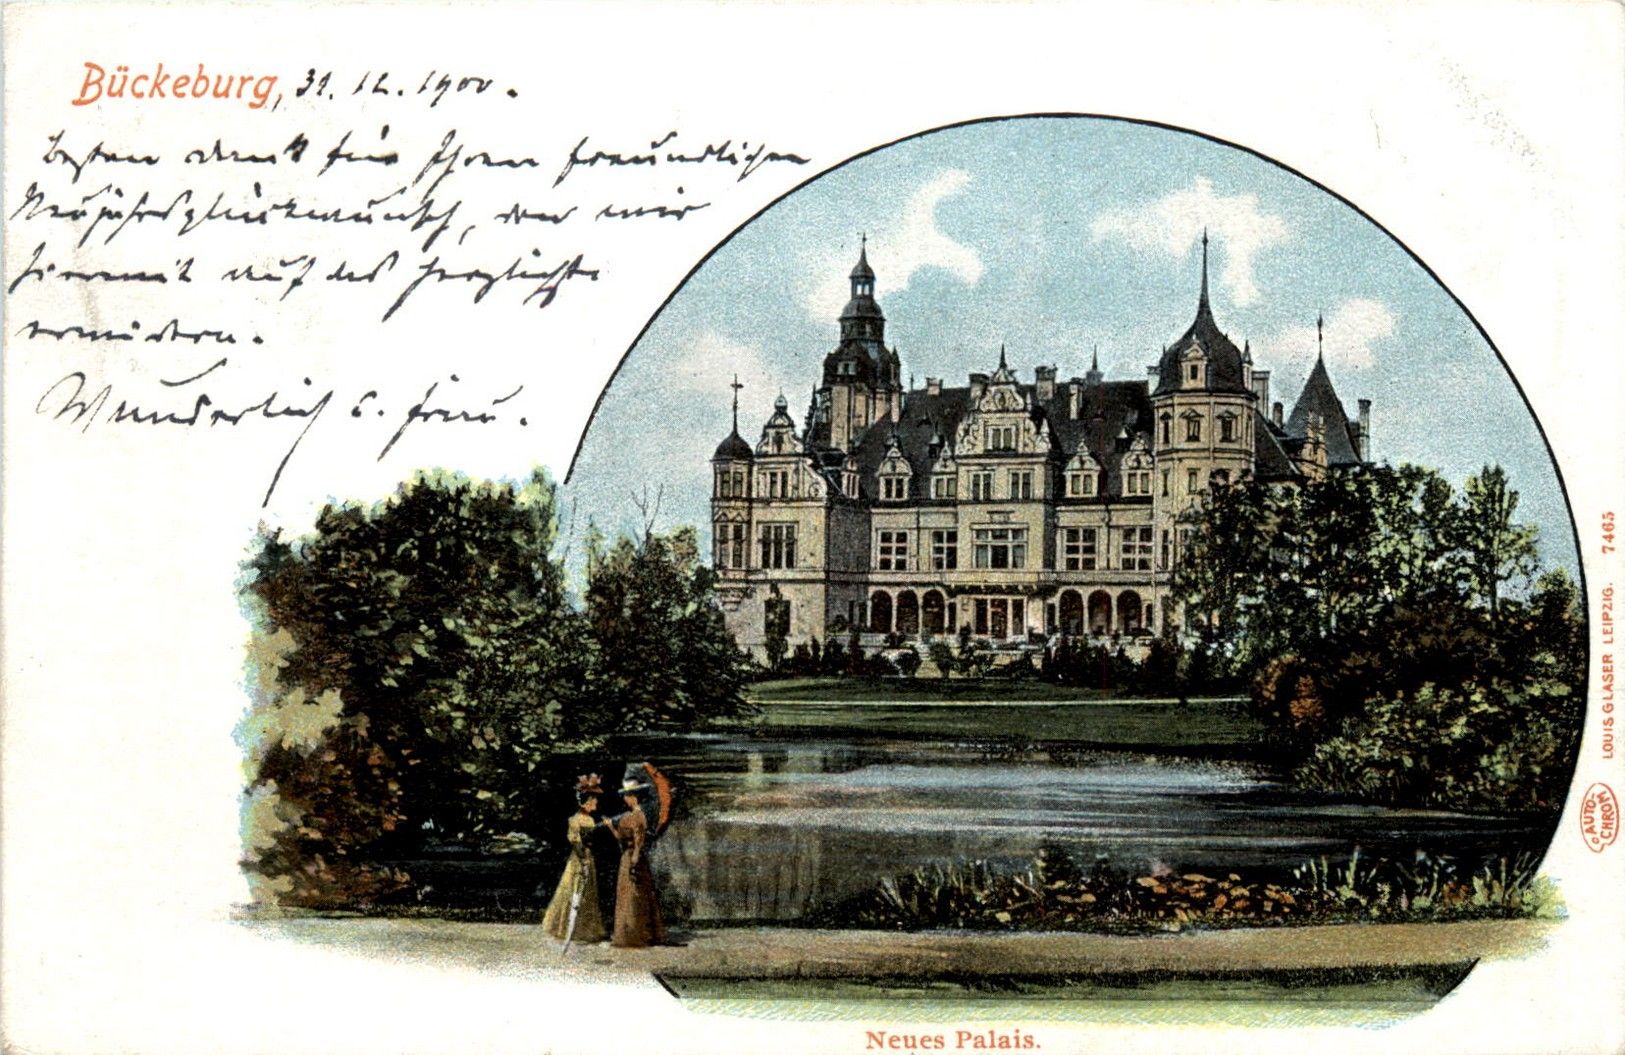 Bückeburg, 31. 12. 1900.
Besten Dank für Ihren freundlichen
Neujahrsglückwunsch, den wir
hiermit auf das herzlichste
erwidern.
Wunderlich u. Frau.
LOUIS GLASER LEIPZIG. 7465
AUTO-
CHROM
Neues Palais.